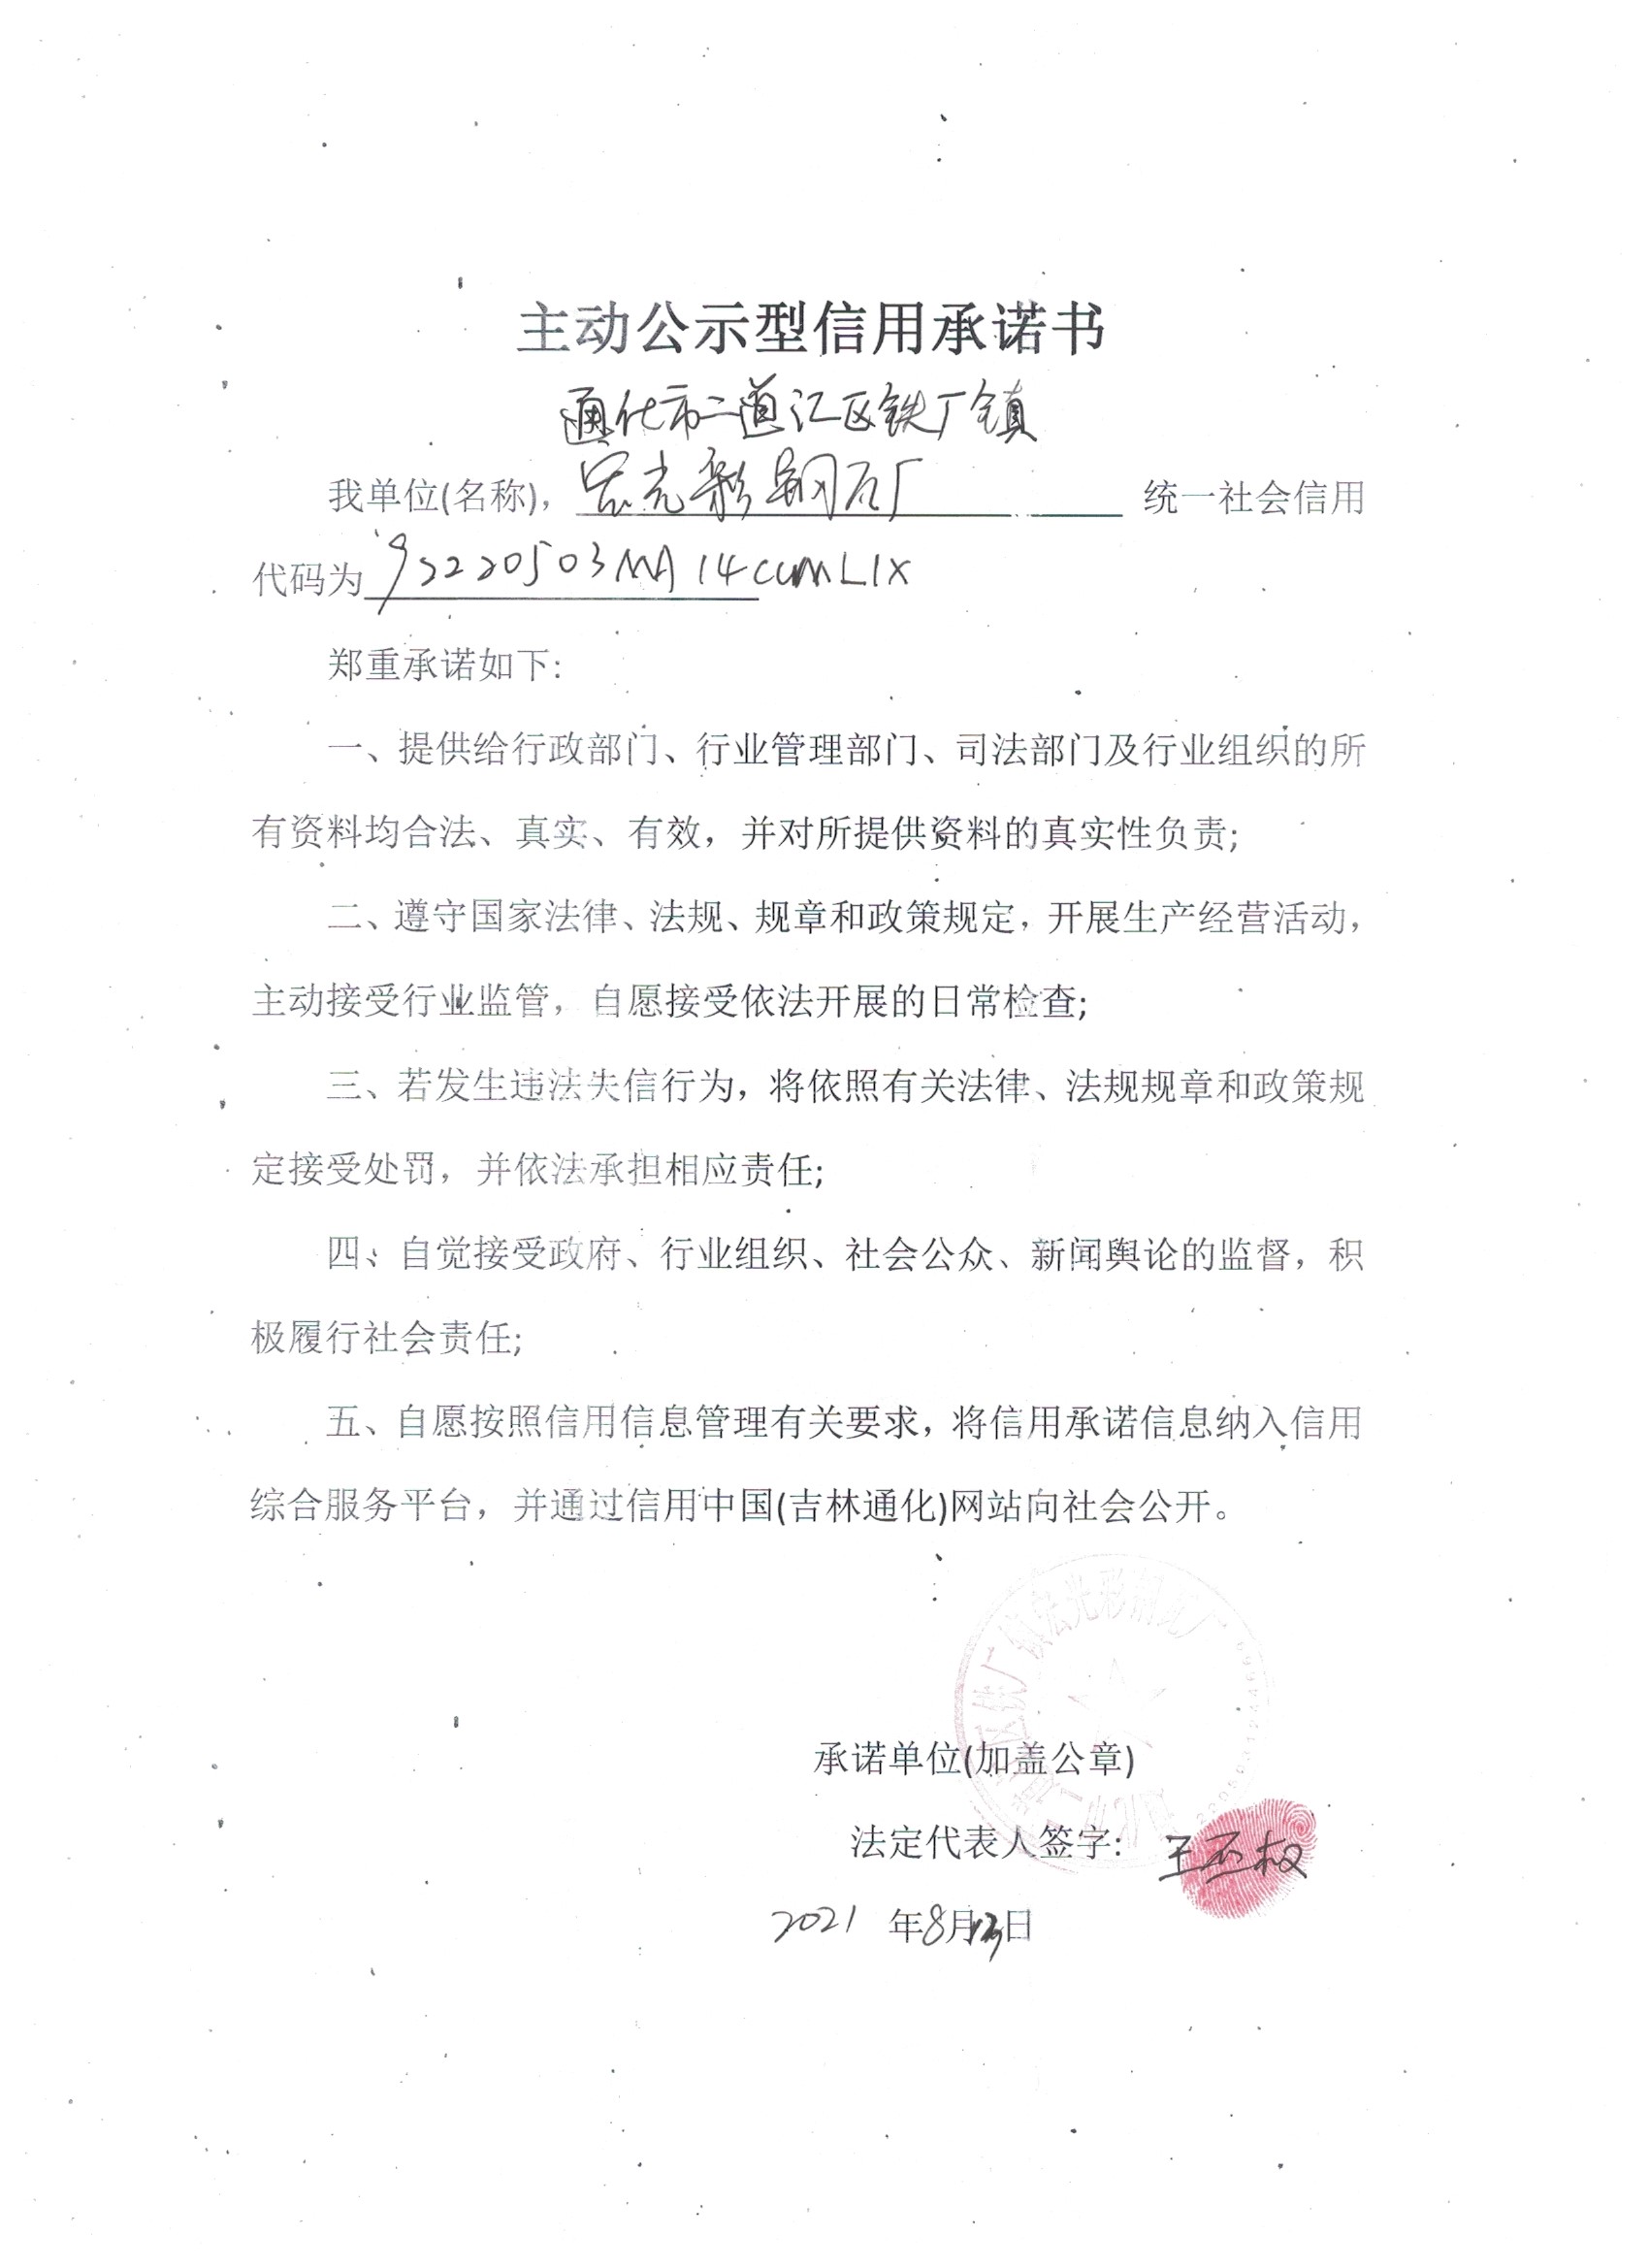 主动公示型信用承诺书
通化市二道江区铁厂镇
我单位(名称)，宏光彩钢瓦厂 统一社会信用
代码为92220503MA14CCML1X
郑重承诺如下:
一、提供给行政部门、行业管理部门、司法部门及行业组织的所
有资料均合法、真实、有效，并对所提供资料的真实性负责;
二、遵守国家法律、法规、规章和政策规定，开展生产经营活动，
主动接受行业监管，自愿接受依法开展的日常检查;
三、若发生违法失信行为，将依照有关法律、法规规章和政策规
定接受处罚，并依法承担相应责任;
四、自觉接受政府、行业组织、社会公众、新闻舆论的监督，积
极履行社会责任;
五、自愿按照信用信息管理有关要求，将信用承诺信息纳入信用
综合服务平台，并通过信用中国(吉林通化)网站向社会公开。
区铁厂镇宏光彩钢瓦厂
承诺单位(加盖公章)
法定代表人签字: 王丕权
2021 年8月13日